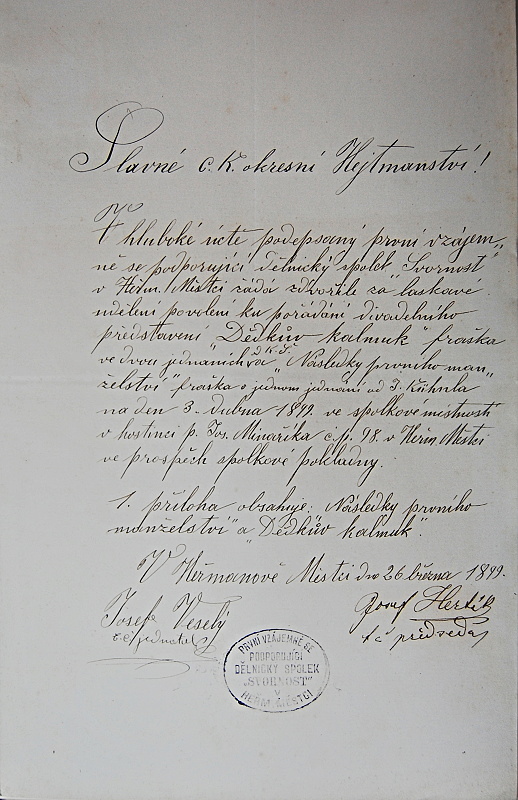 Slavné c. k. okresní Hejtmanství!
V hluboké úctě podepsaný první vzájem„
ně se podporující dělnický spolek „Svornost"
v Heřm. Městci žádá zdvořile za laskavé
udělení povolení ku pořádání divadelního
představení „Dědkův kalmuk" fraška
ve dvou jednáních a „Následky prvního man„
želství" fraška o jednom jednání od J. Kühnla
na den 3. dubna 1899. ve spolkové místnosti
v hostinci p. Jos. Minaříka č. p. 98. v Heřm. Městci
ve prospěch spolkové pokladny.
1. příloha obsahuje: „Následky prvního
manželství" a „Dědkův kalmuk".
V Heřmanově Městci dne 26. března 1899.
Josef Veselý
t. č. jednatel
Josef
t. č. předseda
PRVNÍ VZÁJEMNĚ SE
PODPORUJÍCÍ
DĚLNICKÝ SPOLEK
„SVORNOST"
V
HEŘM. MĚSTCI